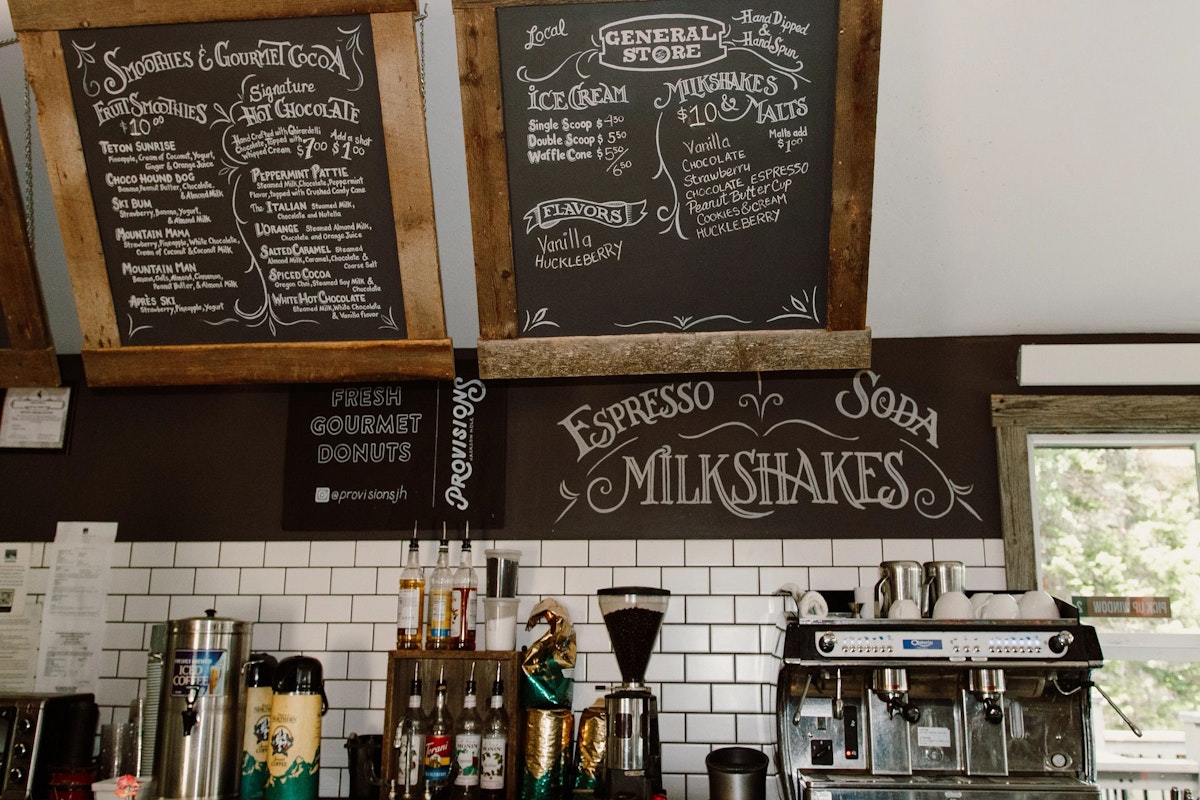 Smoothies & Gourmet Cocoa
Fruit Smoothies
$10.00
Teton Sunrise
Pineapple, Cream of Coconut, Yogurt,
Ginger & Orange Juice
Choco Hound Dog
Banana, Peanut Butter, Chocolate,
& Almond Milk
Ski Bum
Strawberry, Banana, Yogurt,
& Almond Milk
Mountain Mama
Strawberry, Pineapple, White Chocolate,
Cream of Coconut & Coconut Milk
Mountain Man
Banana, Oats, Almond, Cinnamon,
Peanut Butter, & Almond Milk
Après Ski
Strawberry, Pineapple, Yogurt
Signature
Hot Chocolate
Hand Crafted with Ghirardelli
Chocolate, Topped with
Whipped Cream $7.00
Add a shot
$1.00
Peppermint Pattie
Steamed Milk, Chocolate, Peppermint
Flavor, topped with Crushed Candy Cane
The Italian Steamed Milk,
Chocolate and Nutella
L'Orange Steamed Almond Milk,
Chocolate and Orange Juice
Salted Caramel Steamed
Almond Milk, Caramel, Chocolate &
Coarse Salt
Spiced Cocoa
Oregon Chai, Steamed Soy Milk &
Chocolate
White Hot Chocolate
Steamed Milk, White Chocolate
& Vanilla flavor
Local
GENERAL
STORE
Hand Dipped
&
Hand Spun
Ice Cream
Single Scoop $4.50
Double Scoop $5.50
Waffle Cone $5.50
6.50
Flavors
Vanilla
Huckleberry
Milkshakes
$10 & Malts
Malts add
$1.00
Vanilla
Chocolate
Strawberry
Chocolate Espresso
Peanut Butter Cup
Cookies & Cream
Huckleberry
FRESH
GOURMET
DONUTS
@provisionsjh
PROVISIONS
Espresso
Soda
Milkshakes
PICK UP WINDOW
FRESHLY BREWED
ICED
COFFEE
Torani
MONIN
MONIN